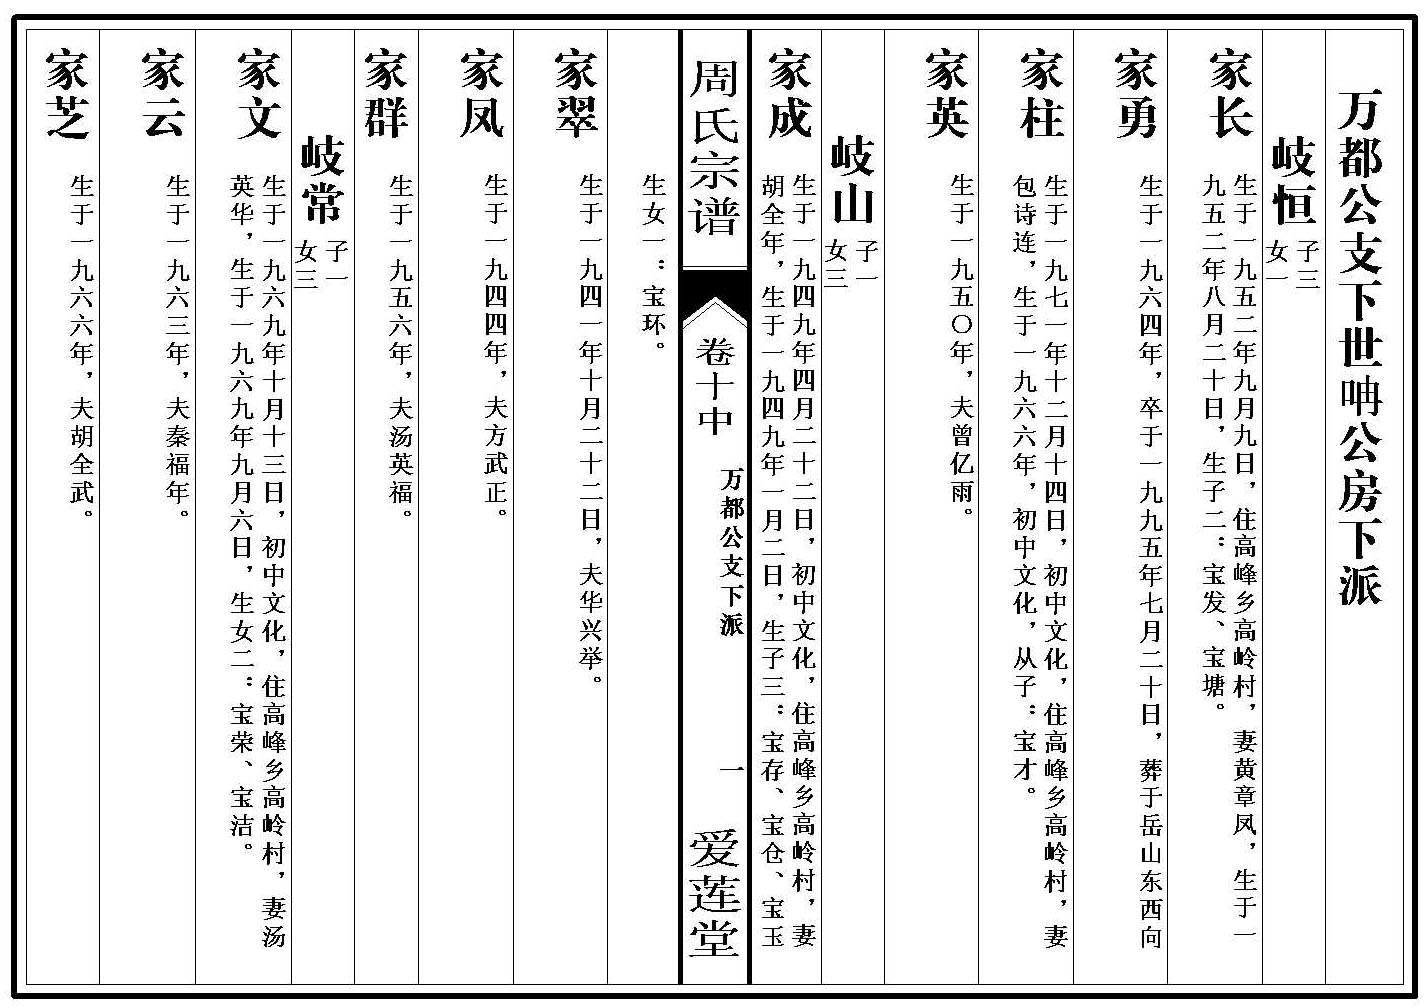 万都公支下世呥公房下派
岐恒
子三
女一
家长
生于一九五二年九月九日，住高峰乡高岭村，妻黄章凤，生于一
九五二年八月二十日，生子二：宝发、宝塘。
家勇
生于一九六四年，卒于一九九五年七月二十日，葬于岳山东西向
家柱
生于一九七一年十二月十四日，初中文化，住高峰乡高岭村，妻
包诗连，生于一九六六年，初中文化，从子：宝才。
家英
生于一九五〇年，夫曾亿雨。
岐山
子一
女三
家成
生于一九四九年四月二十二日，初中文化，住高峰乡高岭村，妻
胡全年，生于一九四九年一月二日，生子三：宝存、宝仓、宝玉
周氏宗谱
卷十中
万都公支下派
一
爱莲堂
生女一：宝环。
家翠
生于一九四一年十月二十二日，夫华兴举。
家凤
生于一九四四年，夫方武正。
家群
生于一九五六年，夫汤英福。
岐常
子一
女三
家文
生于一九六九年十月十三日，初中文化，住高峰乡高岭村，妻汤
英华，生于一九六九年九月六日，生女二：宝荣、宝洁。
家云
生于一九六三年，夫秦福年。
家芝
生于一九六六年，夫胡全武。